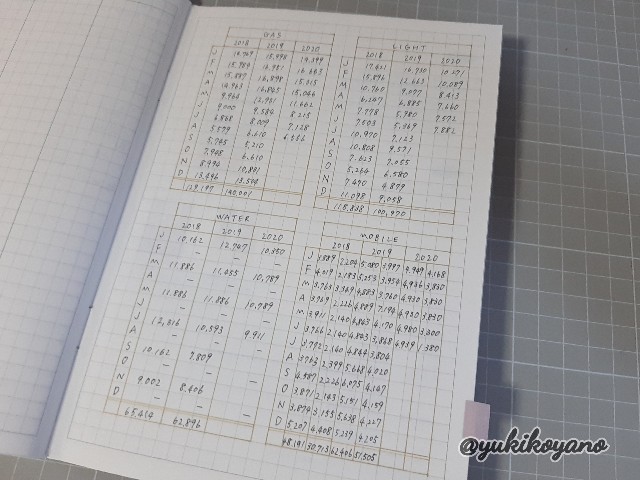 GAS
2018 2019 2020
J 14,969 15,898 14,399
F 15,989 16,981 16,663
M 15,887 16,898 15,315
A 14,963 16,845 15,046
M 9,966 12,931 11,662
J 9,000 9,584 8,215
J 6,868 8,009 7,128
A 5,579 6,610
S 5,745 5,210
O 7,908 6,610
N 8,994 10,881
D 13,496 13,504
129,197 140,001
LIGHT
2018 2019 2020
J 17,421 16,730 10,271
F 15,896 12,663 10,089
M 10,760 9,077 8,413
A 6,247 6,885 7,660
M 7,778 5,980 7,572
J 7,503 5,969 7,882
J 10,970 7,123
A 10,808 9,571
S 7,623 7,055
O 5,264 6,580
N 7,490 4,879
D 11,098 9,058
118,838 100,970
WATER
2018 2019 2020
J 10,162 12,747 10,350
F — — —
M 11,886 11,455 10,789
A — — —
M 11,886 11,886 10,789
J — — —
J 12,316 10,593 9,911
A — — —
S 10,162 9,809
O — — —
N 9,002 8,406
D — —
65,414 62,896
MOBILE
2018 2019 2020
J 3,889 2,204 5,080 3,997 4,949 4,168
F 4,019 2,183 5,253 3,954 4,936 3,830
M 3,763 3,369 4,883 3,760 4,930 3,830
A 3,769 2,226 4,889 7,194 4,930 3,830
M 3,911 2,140 4,863 4,170 4,980 3,800
J 3,766 2,140 4,843 3,868 4,939 1,380
J 3,792 2,140 4,844 3,804
A 3,762 2,399 5,668 4,020
S 4,587 2,226 6,075 4,147
O 3,891 2,143 5,151 4,159
N 3,874 3,155 5,638 4,227
D 5,207 4,408 5,239 4,205
48,191 30,713 62,406 51,505
@yukikoyano